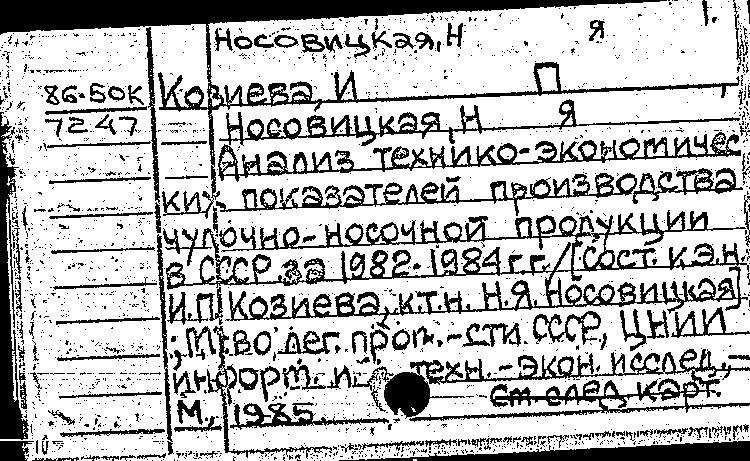 Носовицкая, Н Я 1.
86-БОК Козиева, И П
7247 Носовицкая, Н Я
Анализ технико-экономичес
ких показателей производства
чулочно-носочной продукции
в СССР за 1982-1984 г.г./[Сост. к.э.н.
И.П. Козиева, к.т.н. Н.Я. Носовицкая]
; М-во лег. пром.-сти СССР, ЦНИИ
информ. и техн.-экон. исслед.,—
М., 1985.
См. след. карт.
10